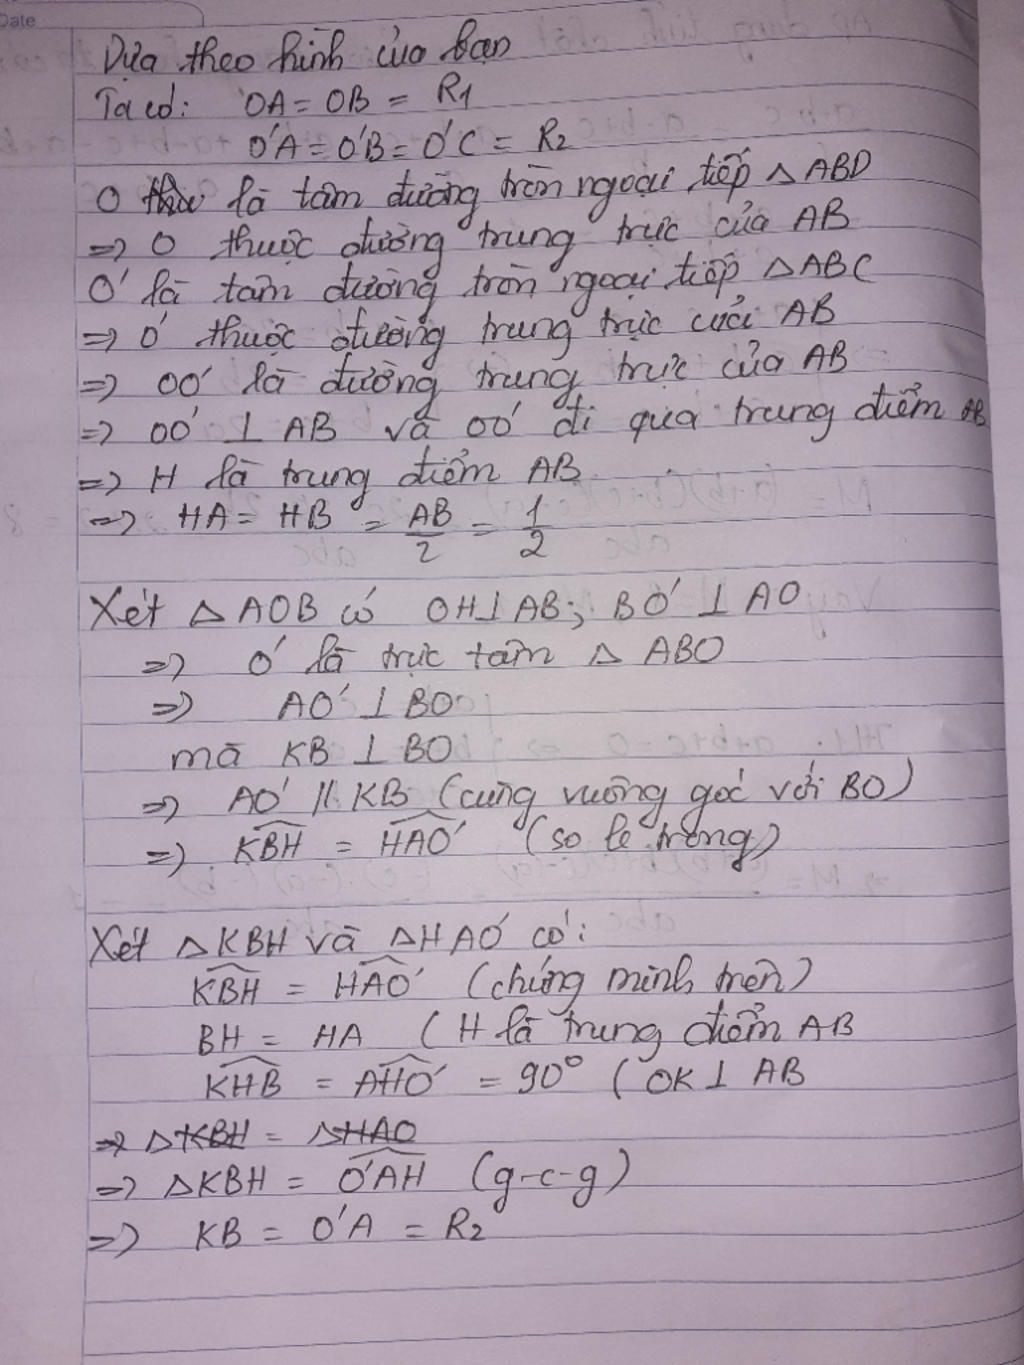 Date
Dựa theo hình của bạn
Ta có: OA = OB = R1
O'A = O'B = O'C = R2
O là tâm đường tròn ngoại tiếp △ ABD
=> O thuộc đường trung trực của AB
O' là tâm đường tròn ngoại tiếp △ABC
=> O' thuộc đường trung trực của AB
=> OO' là đường trung trực của AB
=> OO' ⊥ AB và OO' đi qua trung điểm AB
=> H là trung điểm AB
=> HA = HB = AB/2 = 1/2
Xét △AOB có OH⊥AB; BO' ⊥ AO
=> O' là trực tâm △ ABO
=> AO' ⊥ BO
mà KB ⊥ BO
=> AO' // KB (cùng vuông góc với BO)
=> KBH = HAO' (so le trong)
Xét △KBH và △HAO' có:
KBH = HAO' (chứng minh trên)
BH = HA (H là trung điểm AB
KHB = AHO' = 90° (OK⊥ AB
=> △KBH = △HAO
=> △KBH = O'AH (g-c-g)
=> KB = O'A = R2